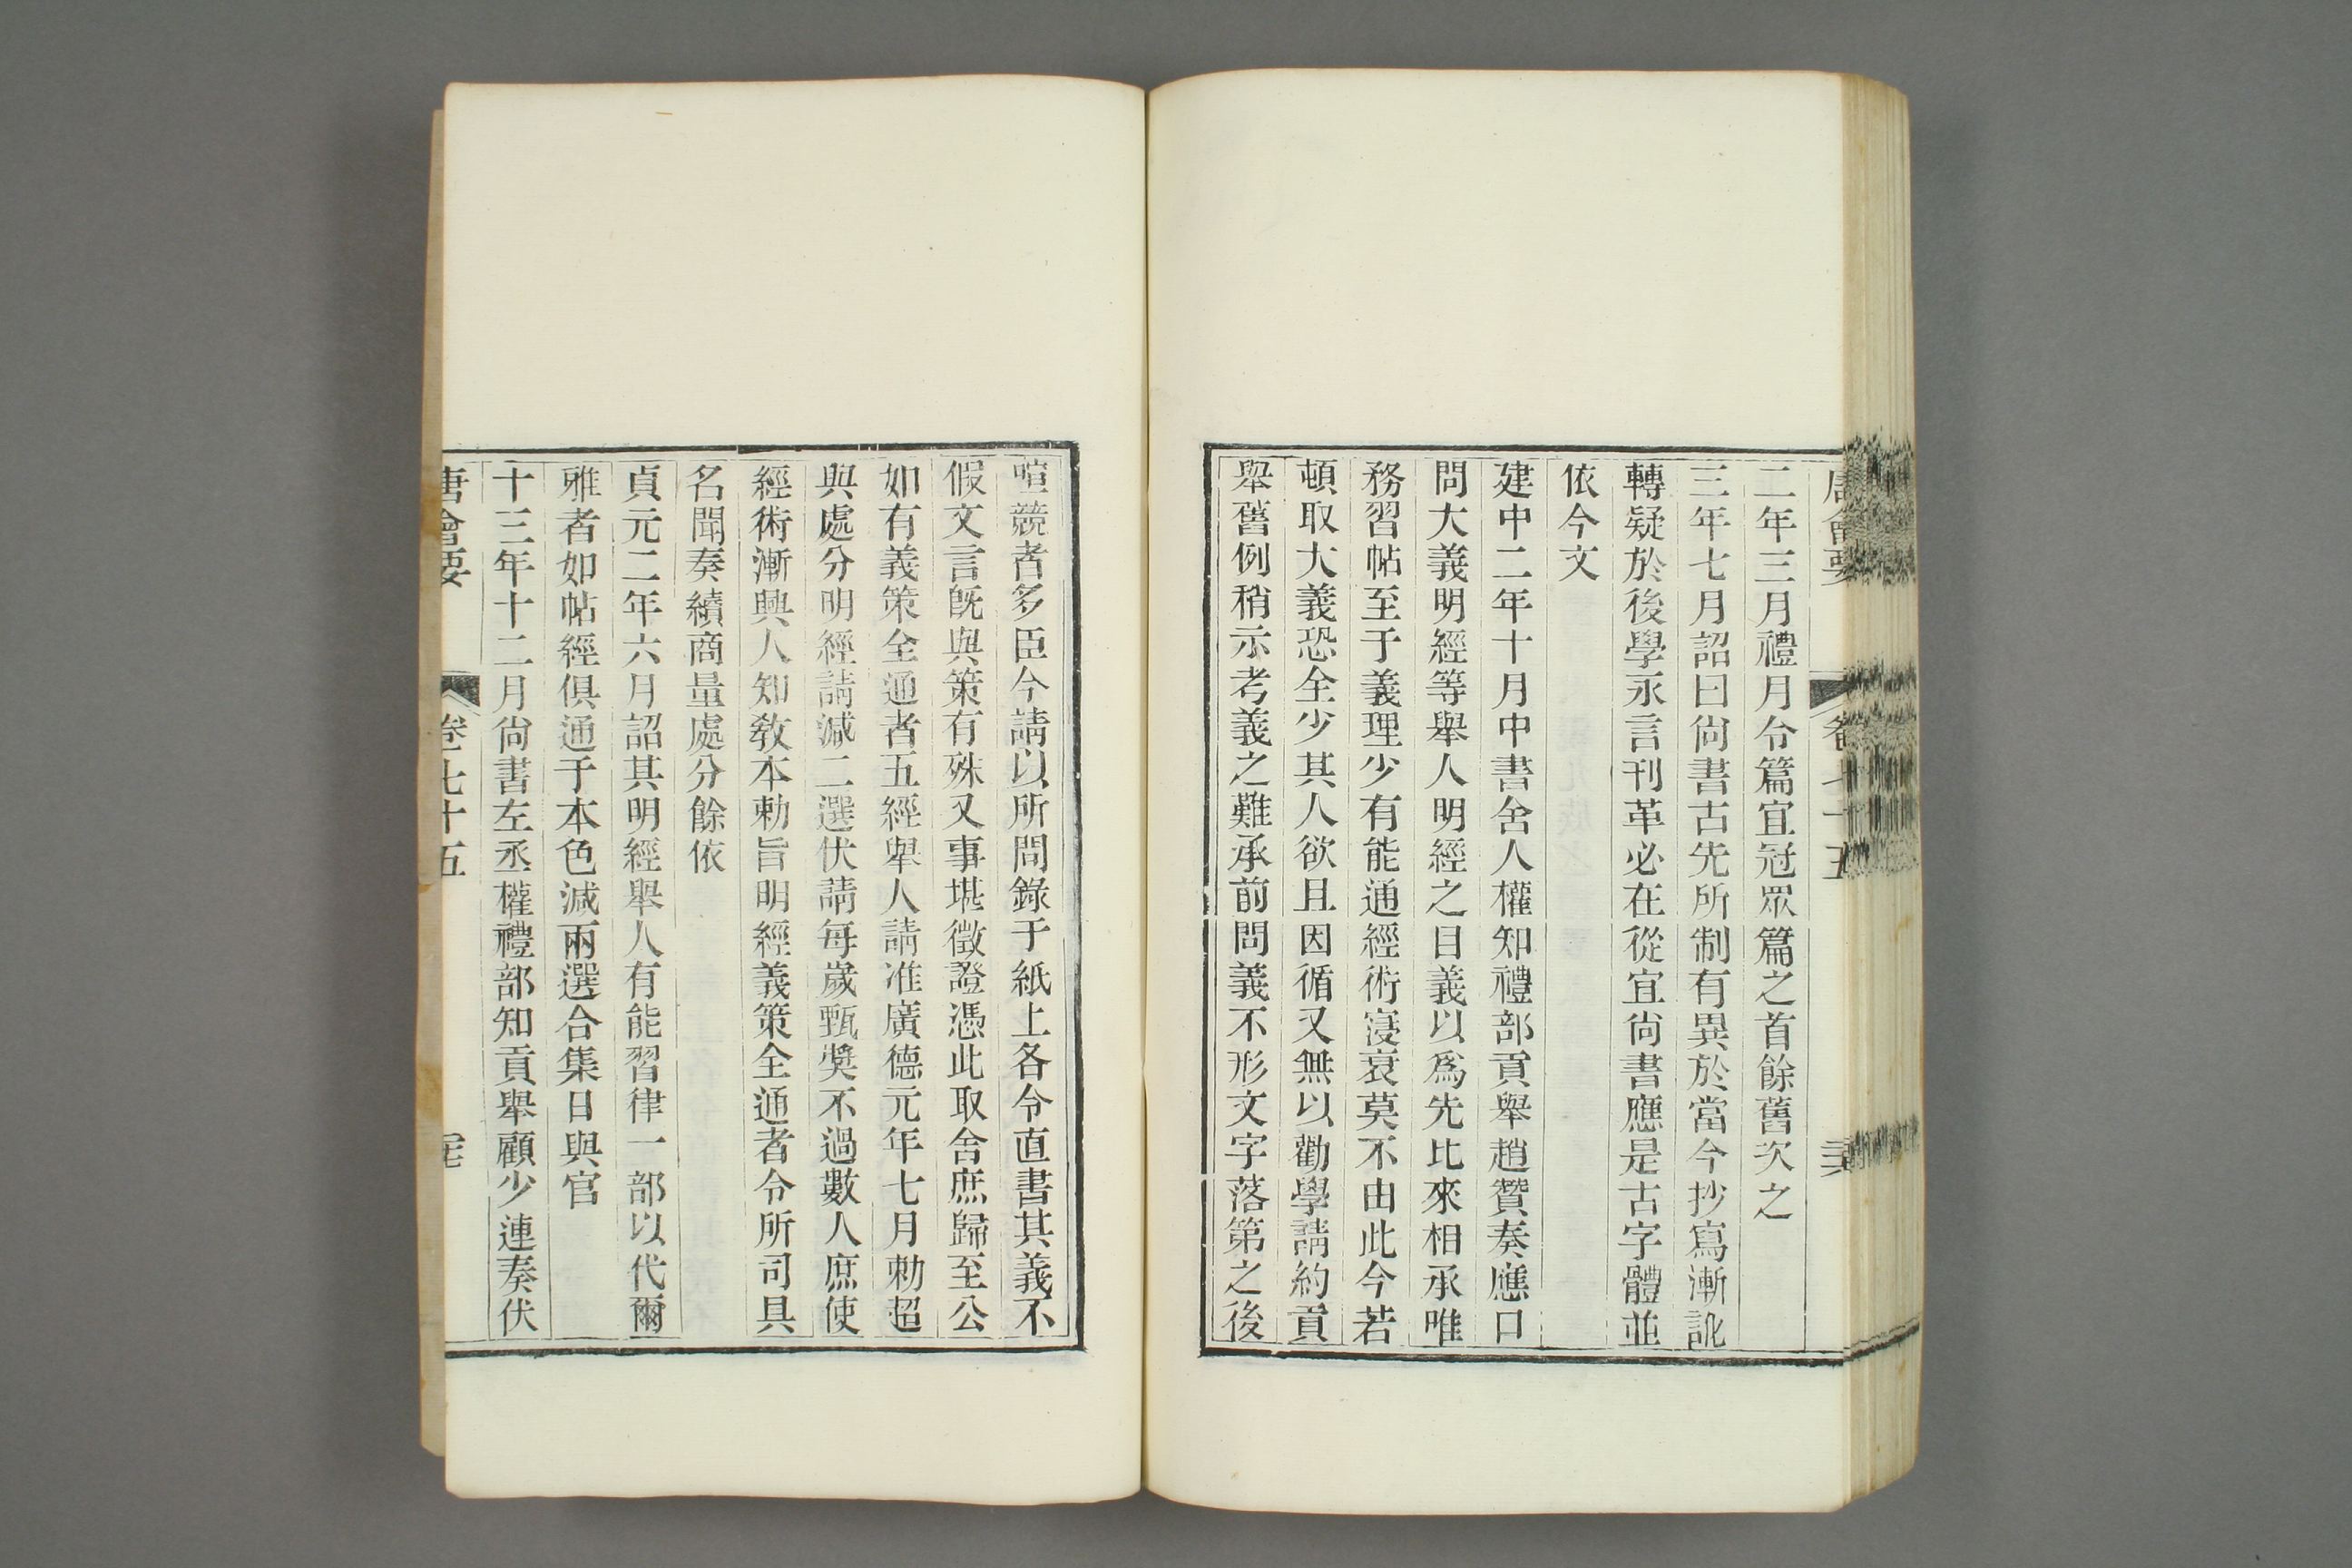 唐會要 卷七十五 三六
二年三月禮月令篇宜冠眾篇之首餘舊次之
三年七月詔曰尙書古先所制有異於當今抄寫漸訛
轉疑於後學永言刊革必在從宜尙書應是古字體並
依今文
建中二年十月中書舍人權知禮部貢舉趙贊奏應口
問大義明經等舉人明經之目義以爲先比來相承唯
務習帖至于義理少有能通經術寖衰莫不由此今若
頓取大義恐全少其人欲且因循又無以勸學請約貢
舉舊例稍示考義之難承前問義不形文字落第之後
喧競者多臣今請以所問錄于紙上各令直書其義不
假文言旣與策有殊又事堪徵證憑此取舍庶歸至公
如有義策全通者五經舉人請准廣德元年七月勅超
與處分明經請減二選伏請每歲甄獎不過數人庶使
經術漸興人知敎本勅旨明經義策全通者令所司具
名聞奏續商量處分餘依
貞元二年六月詔其明經舉人有能習律一部以代爾
雅者如帖經俱通于本色減兩選合集日與官
十三年十二月尙書左丞權禮部知貢舉顧少連奏伏
唐會要 卷七十五